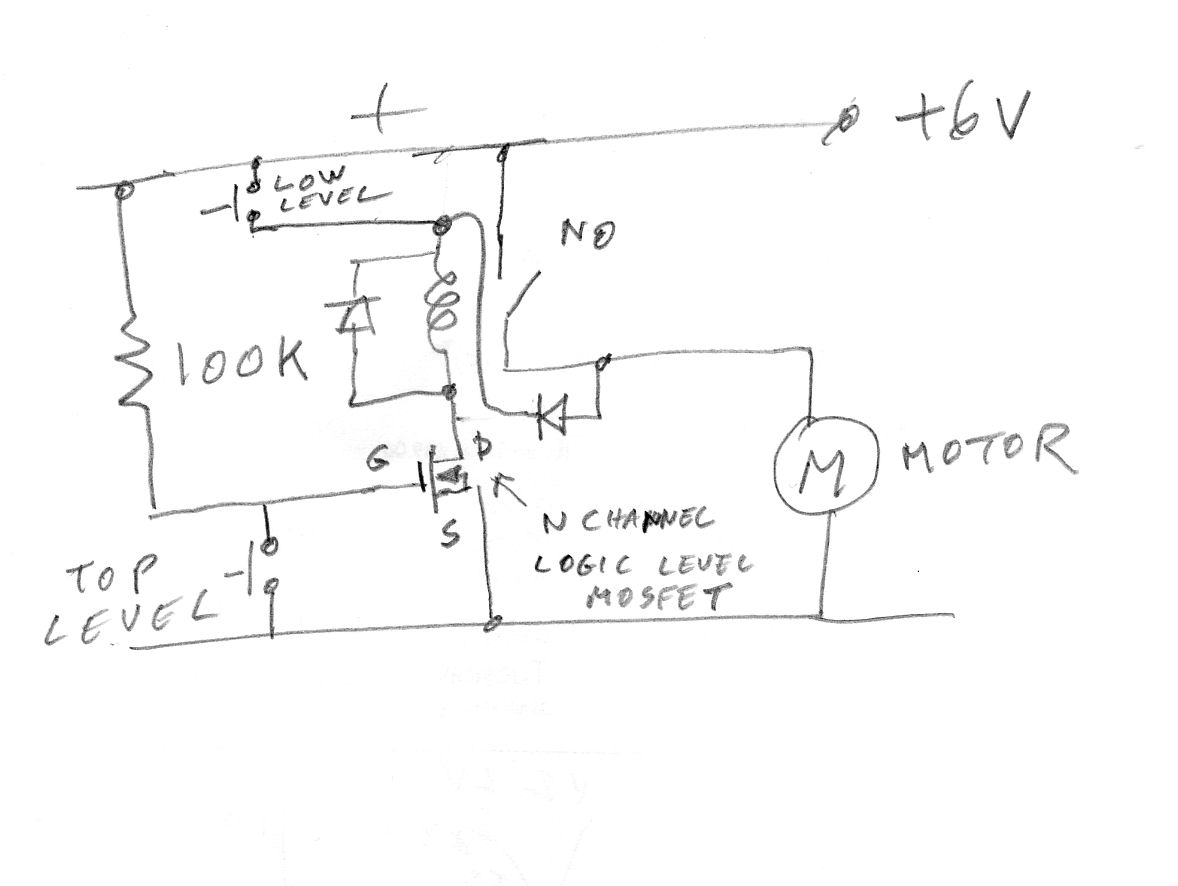 +
+6V
LOW
LEVEL
NO
100K
G
D
S
M
MOTOR
N CHANNEL
LOGIC LEVEL
MOSFET
TOP
LEVEL